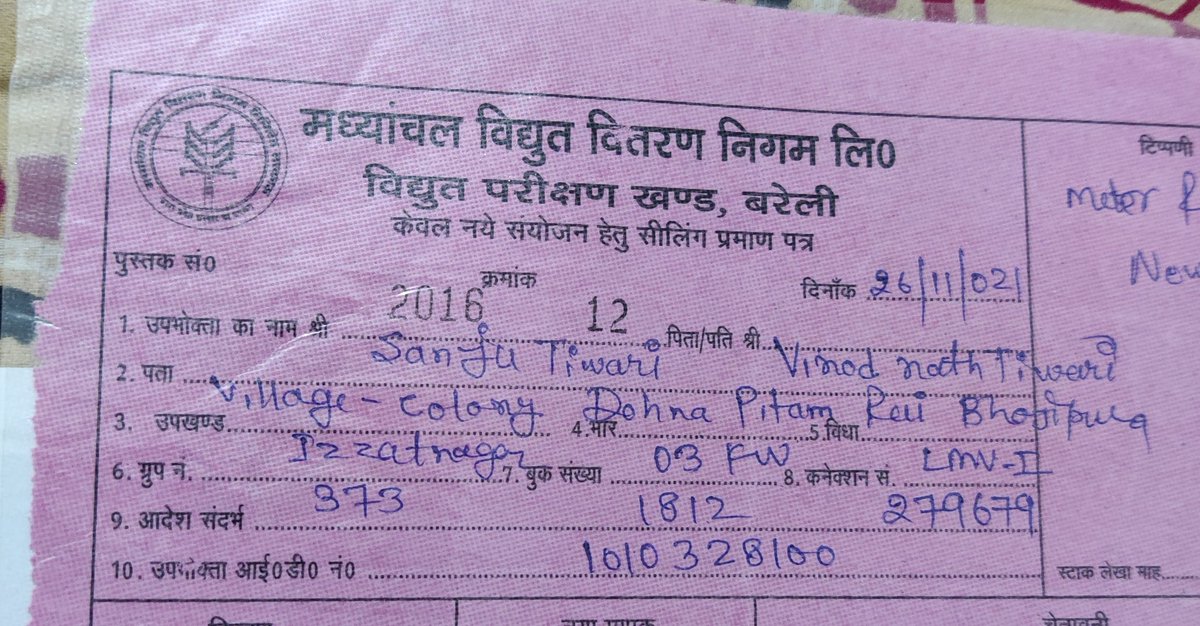 मध्यांचल विद्युत दितरण निगम लि0
विद्युत परीक्षण खण्ड, बरेली
केवल नये संयोजन हेतु सीलिंग प्रमाण पत्र
टिप्पणी
Meter
New
पुस्तक सं0 2016 क्रमांक 12 दिनाँक 26/11/021
1. उपभोक्ता का नाम श्री Sanju Tiwari पिता/पति श्री Vinod nath Tiwari
2. पता Village - Colony Dohna Pitam Rai Bhojipura
3. उपखण्ड Izzatnagar 4. भार 03 KW 5 विधा LMV-I
6. ग्रुप नं. 373 7. बुक संख्या 1812 8. कनेक्शन सं. 279679
9. आदेश संदर्भ
10. उपभोक्ता आई0डी0 नं0 1010328100
स्टाक लेखा माह
चेतावनी